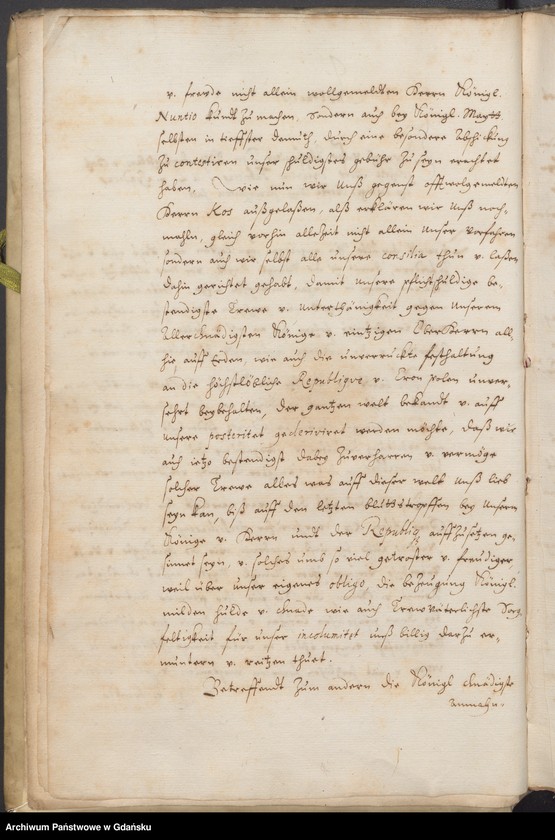 v. freude nicht allein wollgemeldten Herrn Königl.
Nuntio kundt zu machen, sondern auch bey Königl. Maytt.
selbsten in tieffster demuth, durch eine besondere abschickung
zu contestiren unser schuldigstes gebühr zu seyn erachtet
haben. Wie nun wir unß gegenst offtwolgemeldten
Herrn Kos außgelaßen, alß erklären wir unß noch-
mahln, gleich vorhin allezeit nicht allein unser Vorfahren
sondern auch wir selbst alle unsere consilia thun v. laßen
dahin gerichtet gehabt, damit unsere pflichtschuldige be-
stendigste Trewe v. unterthänigkeit gegen unserem
allergnädigsten Könige v. eintzigen OberHerrn all-
hie auff Erden, wie auch die unverruckte festhaltung
an die höchstlöbliche Republique v. Cron Polen unver-
sehrt beybehalten, der gantzen welt bekandt v. auff
unsere posteritet gederiviret werden möchte, daß wir
auch ietzo bestendigst dabey zuverharren v. vermöge
solcher Trewe alles was auff dieser welt unß lieb
seyn kan, biß auff den letzten bluttstropffen bey unserm
Könige v. Herrn undt der Republiq auffzusetzen ge-
sinnet seyn, v. solches umb so viel getroster v. freudiger,
weil über unser eigenes obligo, die bezeugung Königl.
milden hulde v. gnade wie auch Trewväterlichste Sorg-
feltigkeit für unser incolumitet unß billig darzu er-
muntern v. reitzen thuet.
Betreffendt zum andern die Königl gnädigste
anmahn-
Archiwum Państwowe w Gdańsku